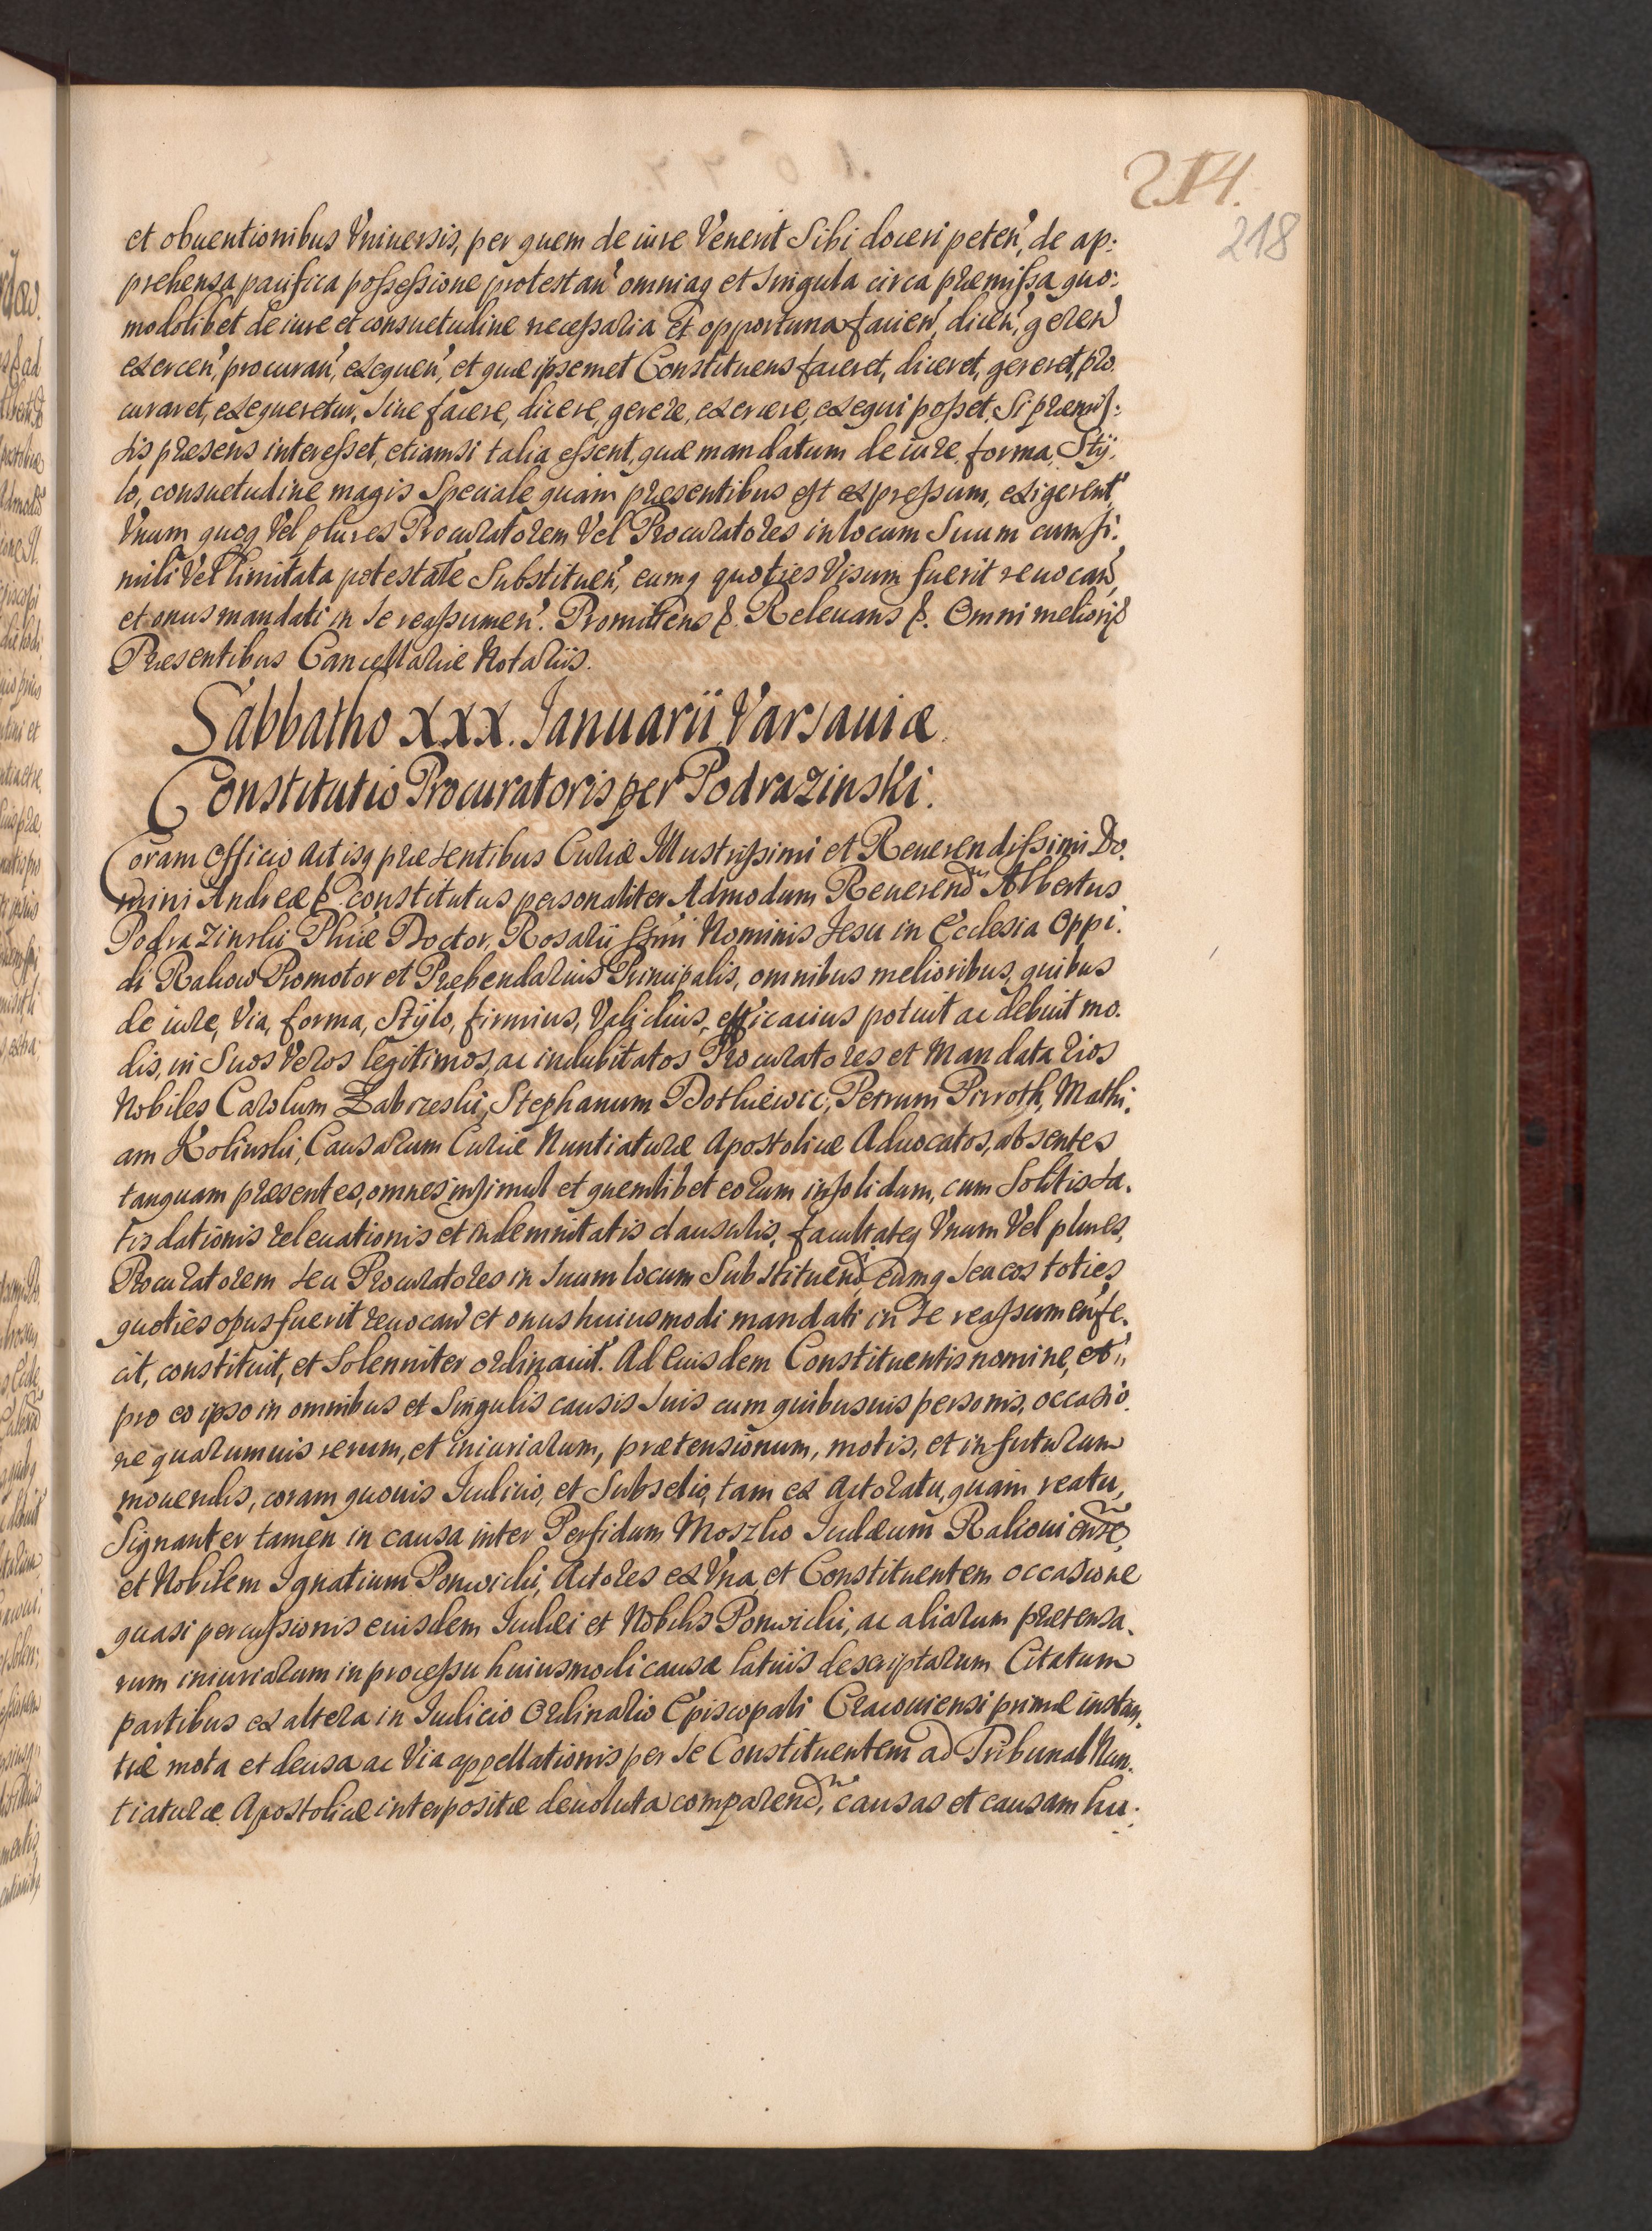 214.
218
et obuentionibus Vniuersis, per quem de iure Venerit Sibi doceri peten', de ap:
prehensa pacifica possessione protestan' omniaq et singula circa præmissa quo:
modolibet de iure et consuetudine necessaria et opportuna facien', dicen', geren'
exercen', procuran', exequen', et quæ ipsemet Constituens faceret, diceret, gereret, pro
curaret, exequeretur, siue facere, dicere, gerere, exercere, exequi posset, Si præmis:
sis præsens interesset, etiamsi talia essent, quæ mandatum de iure, forma, Stÿ:
lo, consuetudine magis Speciale quam præsentibus est expressum, exigerent,
Vnum quoq Vel plures Procuratorem Vel Procuratores in locum Suum cum si:
mili Vel limitata potestate Substituen', eumq quoties Visum fuerit reuocan',
et onus mandati in se reassumen'. Promittens &. Releuans &. Omni meliori &
Præsentibus Cancellariæ Notariis.
Sabbatho XXX. Ianuarii Varsauiæ.
Constitutio Procuratoris per Podrazinski.
Coram Officio Actisq præsentibus Curiæ Illustrissimi et Reuerendissimi Do:
mini Andreæ &. constitutus personaliter Admodum Reuerend9 Albertus
Podrazinski Phiæ Doctor, Rosarii SSmi Nominis Jesu in Ecclesia Oppi:
di Rakow Promotor et Præbendarius Principalis, omnibus melioribus, quibus
de iure, Via, forma, Stÿlo, firmius, Validius, efficacius potuit ac debuit mo.
dis, in Suos Veros legitimos, ac indubitatos Procuratores et Mandatarios
Nobiles Carolum Zabrzeski, Stephanum Dothiewic, Petrum Pirroth, Mathi.
am Kolinski, Causarum Curiæ Nuntiaturæ Apostolicæ Aduocatos, absentes
tanquam præsentes, omnes insimul et quemlibet eorum insolidum, cum Solitis sa.
tisdationis releuationis et indemnitatis clausulis, facultateq Vnum Vel plures,
Procuratorem seu Procuratores in suum locum Substituend', eumq seu eos toties
quoties opus fuerit reuocan' et onus huiusmodi mandati in se reassumen' fe.
cit, constituit, et Solenniter ordinauit. Ad Eiusdem Constituentis nomine, et
pro eo ipso in omnibus et Singulis causis Suis cum quibusuis personis, occasio.
ne quarumuis rerum, et iniuriarum, prætensionum, motis, et in futurum
mouendis, coram quouis Iudicio, et Subselio, tam ex Actoratu, quam reatu,
Signanter tamen in causa inter Perfidum Moszko Iudæum Rakouiense,
et Nobilem Ignatium Ponwicki, Actores ex Vna, et Constituentem occasione
quasi percussionis eiusdem Iudæi et Nobilis Ponwicki, ac aliarum prætensa.
rum iniuriarum in processu huiusmodi causæ latius descriptarum Citatum
partibus ex altera in Iudicio Ordinario Episcopali Cracouiensi primæ instan.
tiæ mota et decisa ac Via appellationis per se Constituentem ad Tribunal Nun.
tiaturæ Apostolicæ interpositæ deuoluta comparend', causas et causam hu.